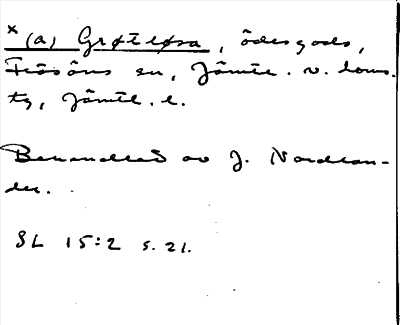 × (a) Grøtløsa, ödesgods,
Frösöns sn, Jämtl. v. doms.
tg, Jämtl. l.
Behandlad av J. Nordlan-
der.
SL 15:2 s. 21.